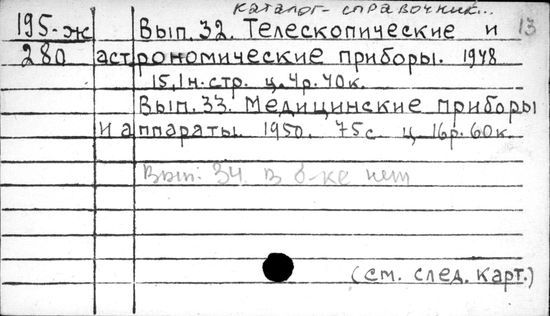 каталог-справочник...
195-ж Вып. 32. Телескопические и 13
280 астрономические приборы. 1948
15,1н.стр. ц. 4р. 40к.
Вып. 33. Медицинские приборы
и аппараты. 1950. 75с. ц. 16р. 60к.
Вып. 34. в б-ке нет
(см. след. карт.)